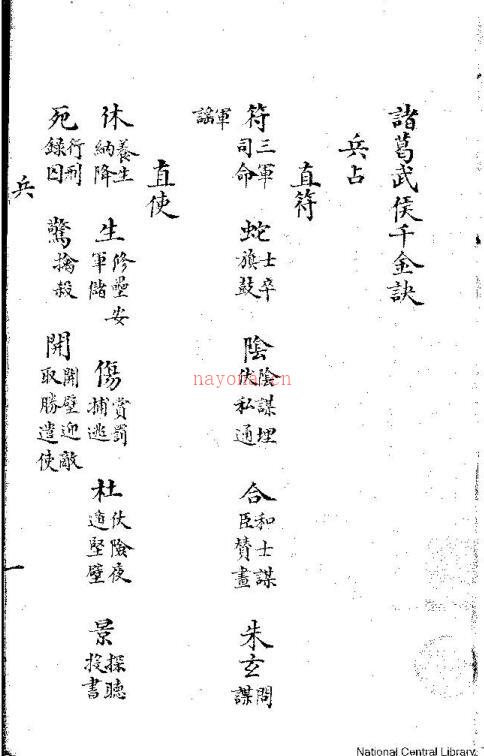 諸葛武侯千金訣
兵占
直符
符 三軍司命 蛇 士卒旗鼓 陰 陰謀埋伏私通 合 和士謀臣贊畫 朱玄 問謀
軍謠
直使
休 養生納降 生 修壘安軍儲 傷 賞罰捕逃 杜 伏險夜遁堅壁 景 探聽投書
死 行刑錄囚 驚 擒殺 開 開壁迎敵取勝遣使
兵 一
nayona.cn
National Central Library